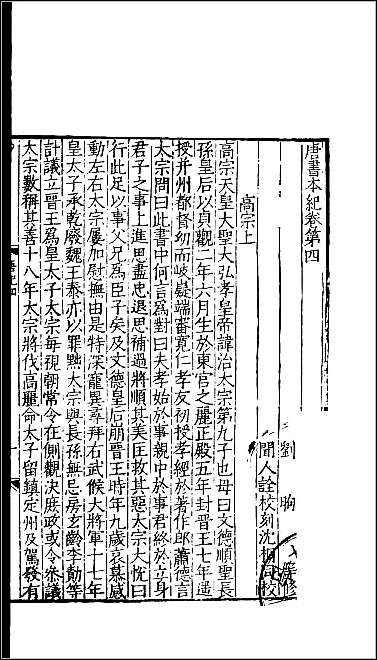 唐書本紀卷第四
劉昫
聞人詮校刻沈桐同校
高宗上
高宗天皇大聖大弘孝皇帝諱治太宗第九子也母曰文德順聖長
孫皇后以貞觀二年六月生於東宮之麗正殿五年封晉王七年遙
授并州都督幼而岐嶷端審寬仁孝友初授孝經於著作郎蕭德言
太宗問曰此書中何言為對曰夫孝始於事親中於事君終於立身
君子之事上進思盡忠退思補過將順其美匡救其惡太宗大悅曰
行此足以事父兄為臣子矣及文德皇后崩晉王時年九歲哀慕感
動左右太宗屢加慰撫由是特深寵異尋拜右武候大將軍十七年
皇太子承乾廢魏王泰亦以罪黜太宗與長孫無忌房玄齡李勣等
計議立晉王為皇太子太宗每視朝常令在側觀決庶政或令參議
太宗數稱其善十八年太宗將伐高麗命太子留鎮定州及駕發有